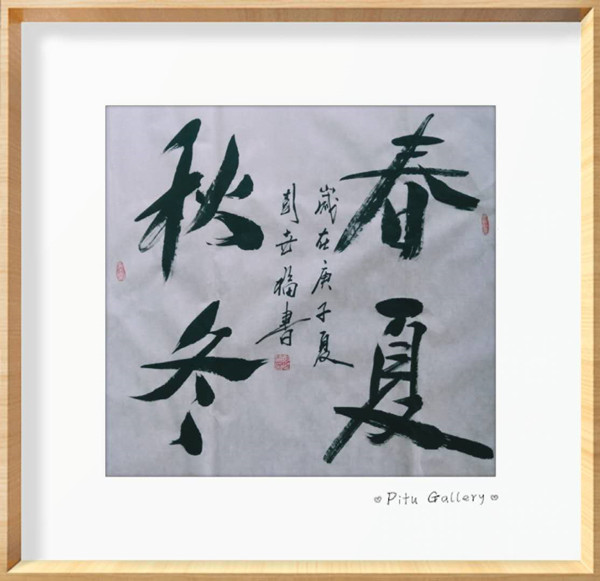 春夏
秋冬
歲在庚子夏
福書
Pitu Gallery